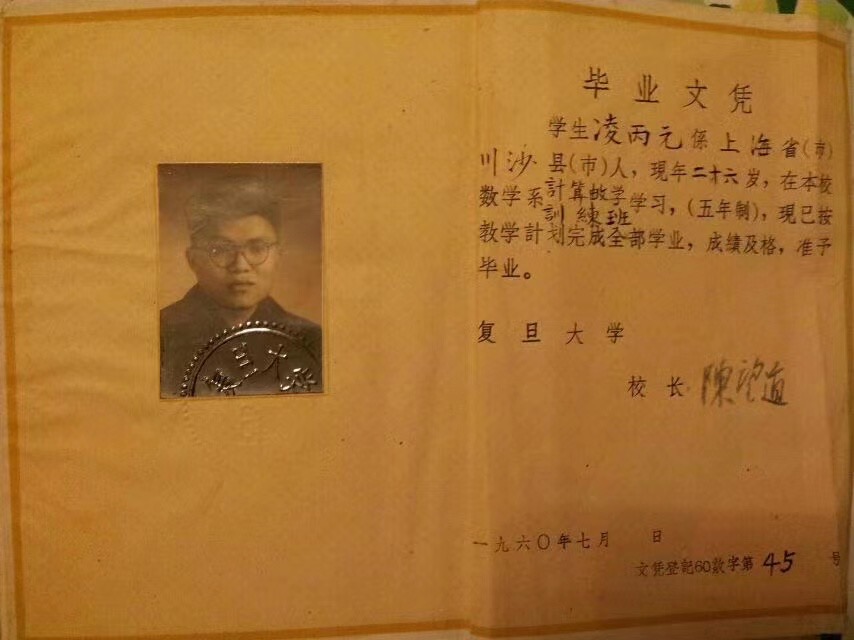 毕业文凭
学生凌丙元係上海省(市)
川沙县(市)人，现年二十六岁，在本校
数学系計算数学
訓練班学习，(五年制)，现已按
教学計划完成全部学业，成绩及格，准予
毕业。
复旦大学
校长 陳望道
一九六〇年七月 日
文凭登記60数字第45号
旦大